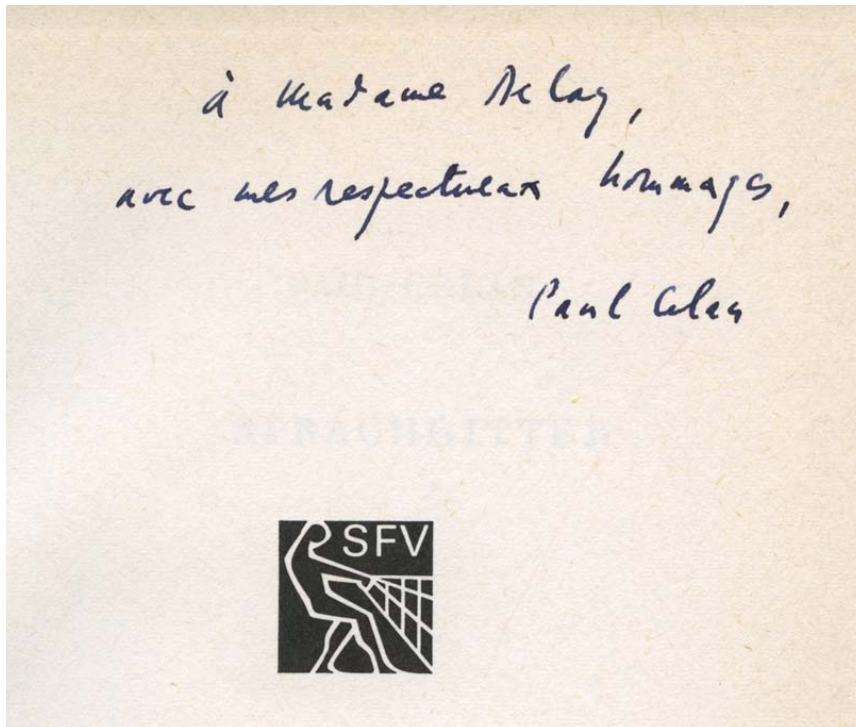 à Madame Delay,
avec mes respectueux hommages,
Paul Celan
SPRACHGITTER
SFV